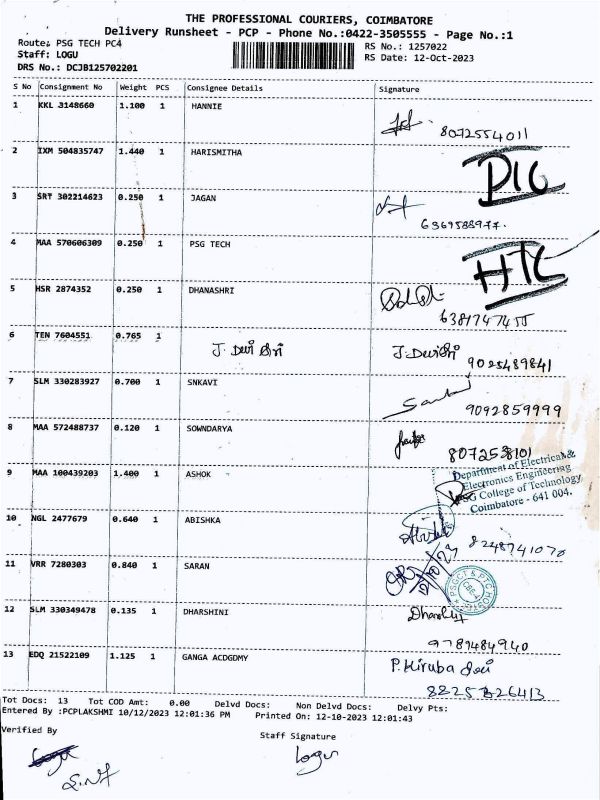 THE PROFESSIONAL COURIERS, COIMBATORE
Delivery Runsheet - PCP - Phone No.:0422-3505555 - Page No.:1
Route: PSG TECH PC4
RS No.: 1257022
Staff: LOGU
RS Date: 12-Oct-2023
DRS No.: DCJB125702201
S No Consignment No Weight PCS Consignee Details Signature
1 KKL 3148660 1.100 1 HANNIE
8072554011
2 IXM 504835747 1.440 1 HARISMITHA
3 SRT 302214623 0.250 1 JAGAN
6369588977.
4 MAA 570606309 0.250 1 PSG TECH
5 HSR 2874352 0.250 1 DHANASHRI
6 TEN 7604551 0.765 1 J. Devi Sri J. Devi Sri
9025489841
7 SLM 330283927 0.700 1 SNKAVI
9092859999
8 MAA 572488737 0.120 1 SOWNDARYA
9 MAA 100439203 1.400 1 ASHOK
Department of Electrical &
Electronics Engineering
PSG College of Technology
Coimbatore - 641 004.
10 NGL 2477679 0.640 1 ABISHKA
8248741070
11 VRR 7280303 0.840 1 SARAN
12/10/23
12 SLM 330349478 0.135 1 DHARSHINI
9789484940
13 EDQ 21522109 1.125 1 GANGA ACDGDMY P. Kiruba devi
Tot Docs: 13 Tot COD Amt: 0.00 Delvd Docs: Non Delvd Docs: Delvy Pts:
Entered By :PCPLAKSHMI 10/12/2023 12:01:36 PM Printed On: 12-10-2023 12:01:43
Verified By Staff Signature
Logu